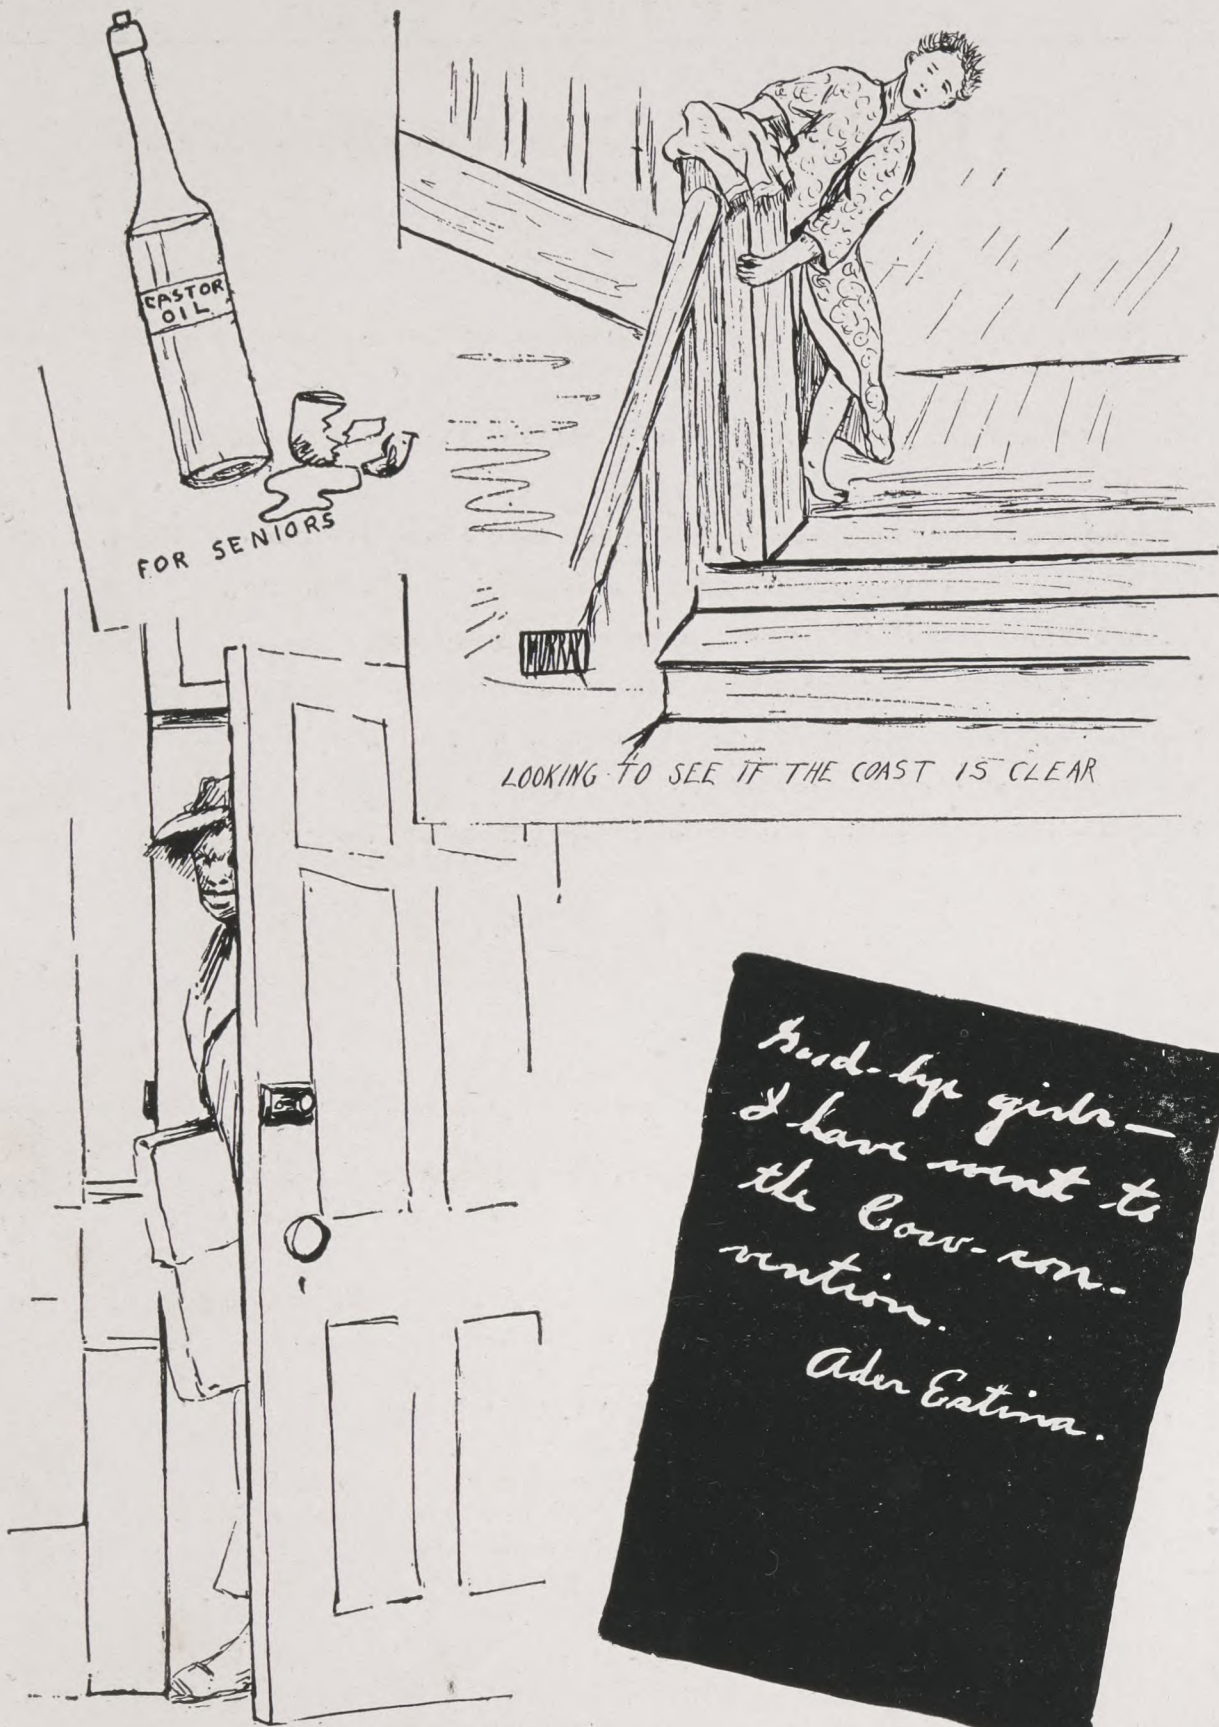 CASTOR
OIL
FOR SENIORS
MURRAY
LOOKING TO SEE IF THE COAST IS CLEAR
Good-bye girls—
I have went to
the Cow-con-
vention.
Ader Estina.